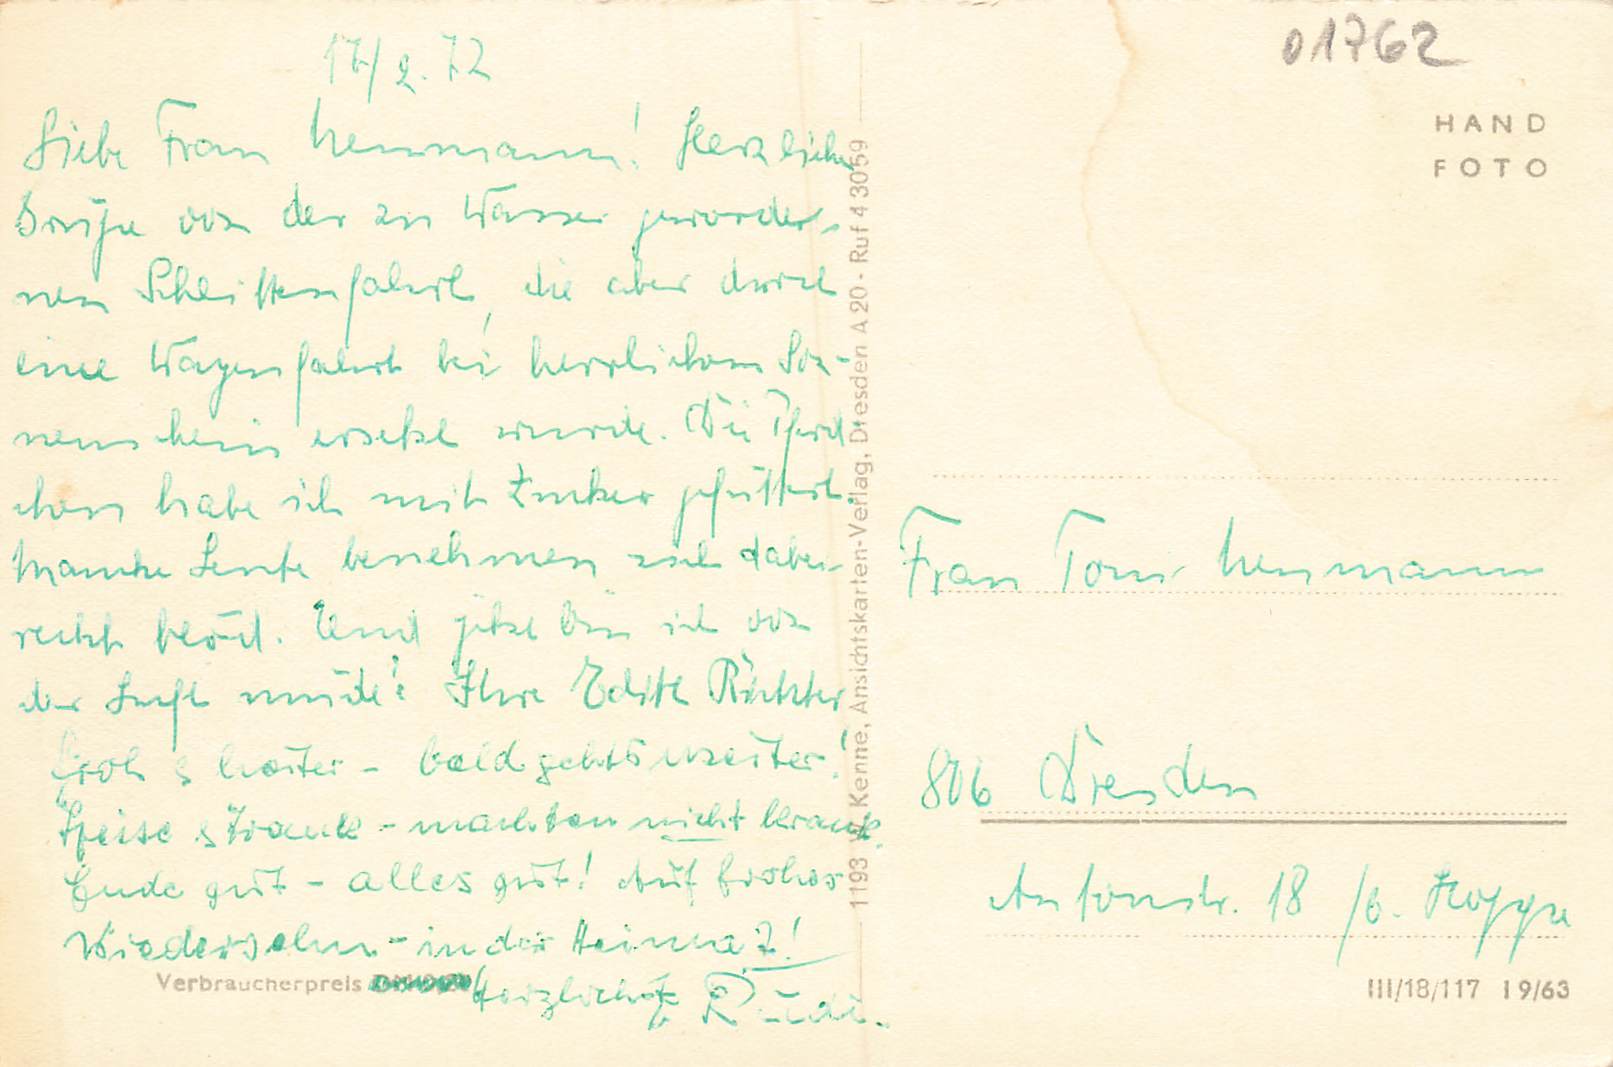 17/2.72
Liebe Frau Neumann! Herzliche
Grüße von der zu Wasser geworde-
nen Schlittenfahrt, die aber durch
eine Wagenfahrt bei herrlichem Son-
nenschein ersetzt wurde. Die Pferd
chen habe ich mit Zucker gefüttert.
Manche Leute benehmen sich dabei
recht blöd. Und jetzt bin ich von
der Luft müde! Ihre Edith Richter
Froh & heiter - bald gehts weiter!
Speise & Trank - machten nicht krank.
Ende gut - alles gut! Auf frohes
Wiedersehn - in der Heimat!
Herzlichst Rudi.
Verbraucherpreis
1193 Kenne, Ansichtskarten-Verlag, Dresden A 20 - Ruf 4 30 59
01762
HAND
FOTO
Frau Toni Neumann
806 Dresden
Antonstr. 18 /b. Hoppe
III/18/117 19/63